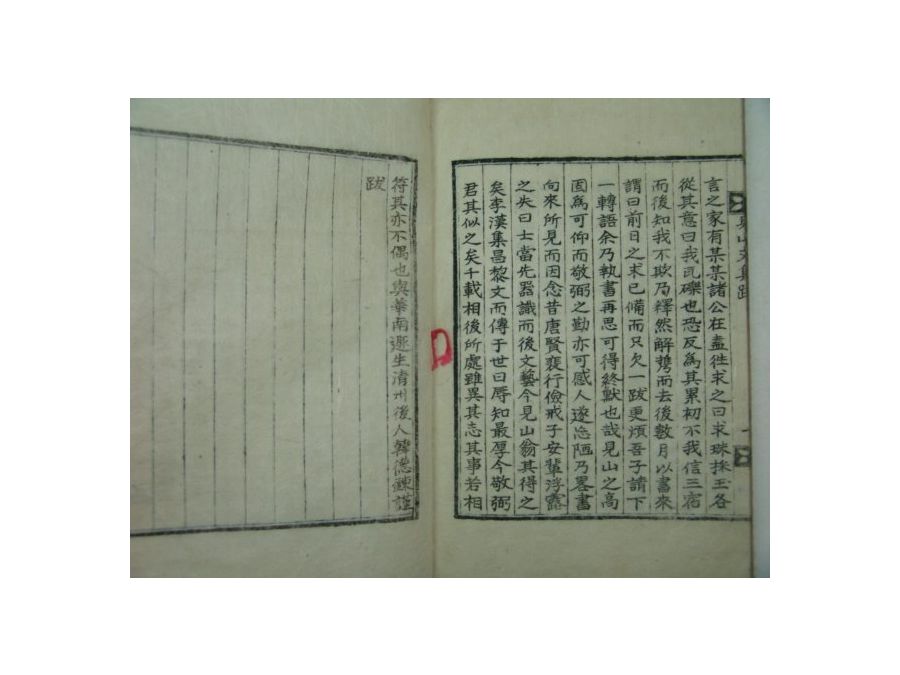 見山文集跋
一
言之家有某某諸公在盍徃求之曰求珠採玉各
從其意曰我瓦礫也恐反為其累初不我信三宿
而後知我不欺乃釋然解携而去後數月以書來
謂曰前日之求已備而只欠一跋更煩吾子請下
一轉語余乃執書再思可得終默也哉見山之高
固為可仰而敬弼之勤亦可感人遂忘陋乃畧書
向來所見而因念昔唐賢裴行儉戒子安輩浮露
之失曰士當先器識而後文藝今見山翁其得之
矣李漢集昌黎文而傳于世曰辱知最厚今敬弼
君其似之矣千載相後所處雖異其志其事若相
符其亦不偶也與華南遯生清州後人韓德鍊謹
跋